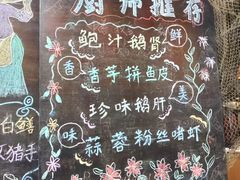 厨师推荐
鲍汁鹅肾
鲜
香
香芋拼鱼皮
美
珍味鹅肝
味
蒜蓉粉丝啫虾
白鳝
猪手